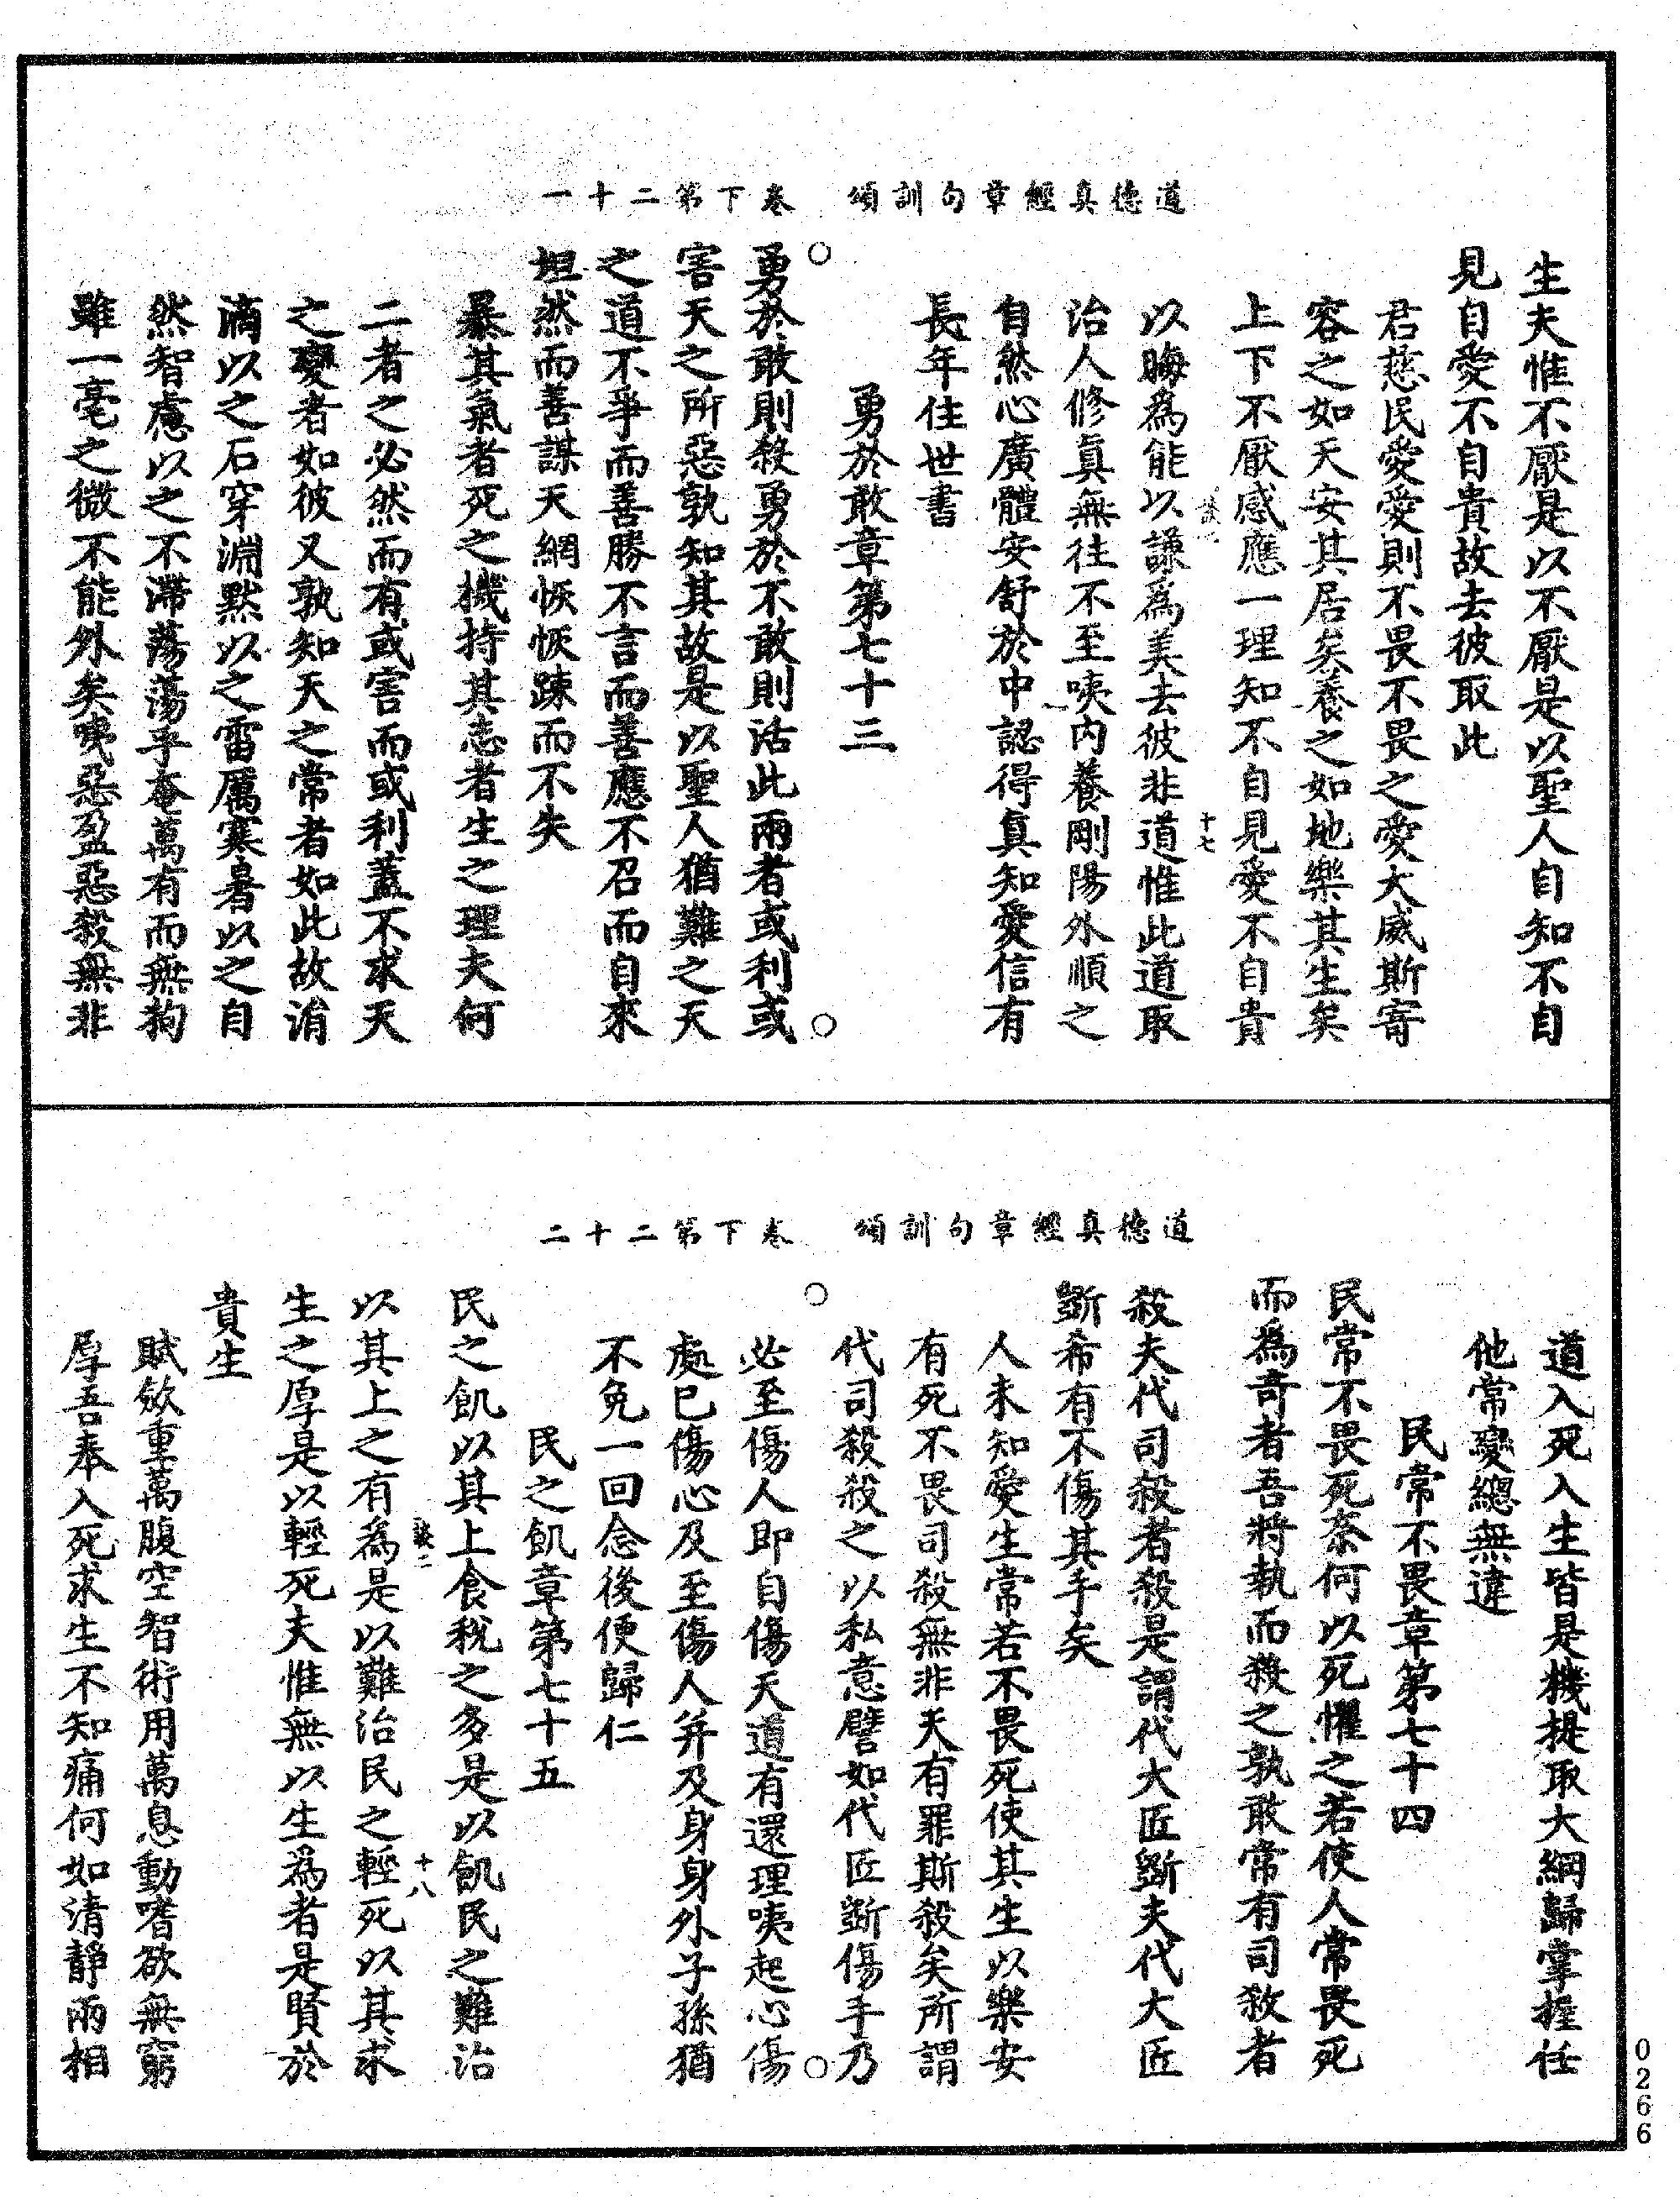 道德真經章句訓頌　卷下第二十一
生夫惟不厭是以不厭是以聖人自知不自
見自愛不自貴故去彼取此
君慈民愛愛則不畏不畏之愛大威斯寄
容之如天安其居矣養之如地樂其生矣
上下不厭感應一理知不自見愛不自貴
談一　十七
以晦爲能以謙爲美去彼非道惟此道取
治人修真無往不至咦內養剛陽外順之
自然心廣體安舒於中認得真知愛信有
長年住世書
勇於敢章第七十三
勇於敢則殺勇於不敢則活此兩者或利或
害天之所惡孰知其故是以聖人猶難之天
之道不爭而善勝不言而善應不召而自來
坦然而善謀天網恢恢踈而不失
暴其氣者死之機持其志者生之理夫何
二者之必然而有或害而或利蓋不求天
之變者如彼又孰知天之常者如此故涓
滴以之石穿淵默以之雷厲寒暑以之自
然智慮以之不滯蕩蕩乎奄萬有而無狥
雖一毫之微不能外矣咦惡盈惡殺無非
道德真經章句訓頌　卷下第二十二
道入死入生皆是機提取大綱歸掌握任
他常變總無違
民常不畏章第七十四
民常不畏死柰何以死懼之若使人常畏死
而爲奇者吾將執而殺之孰敢常有司殺者
殺夫代司殺者殺是謂代大匠斵夫代大匠
斵希有不傷其手矣
人未知愛生常若不畏死使其生以樂安
有死不畏司殺無非天有罪斯殺矣所謂
代司殺殺之以私意譬如代匠斵傷手乃
必至傷人即自傷天道有還理咦起心傷
處已傷心及至傷人并及身身外子孫猶
不免一回念後便歸仁
民之飢章第七十五
民之飢以其上食稅之多是以飢民之難治
談二　十八
以其上之有為是以難治民之輕死以其求
生之厚是以輕死夫惟無以生爲者是賢於
貴生
賦斂重萬腹空智術用萬息動嗜欲無窮
厚吾奉入死求生不知痛何如清靜兩相
0266